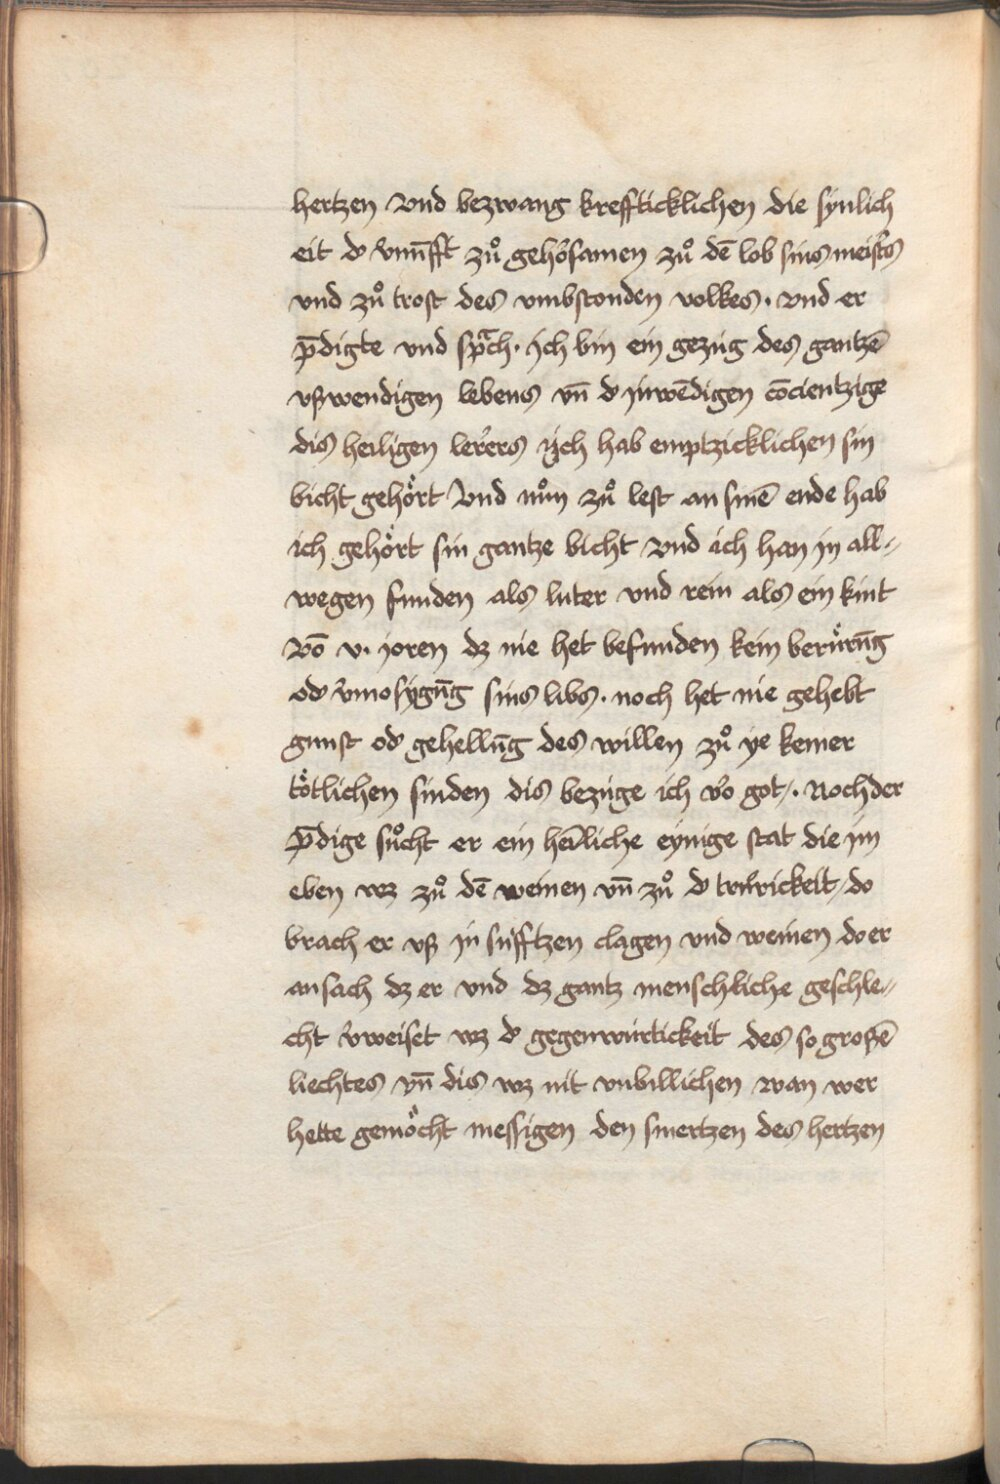 hertzen vnd bezwang kreffticklichen die synlich
eit d᾽ v᾽nūfft zuͦ gehoͤrsamen zuͦ dē lob sins meist᾽s
vnd zuͦ trost des vmbstonden volkes. vnd er
p̄digte vnd sprach. ich bin ein gezüg des gantzē
vßwendigen lebens vn̄ d᾽ jnwēdigen cōcientzige
dis heiligen lerers ych hab emptzicklichen sin
bicht gehoͤrt Vnd nuͦm zuͦ lest an sinē ende hab
ich gehoͤrt sin gantze bicht vnd ich han jn all-
wegen funden als luter vnd rein als ein kint
vō v. joren dz nie het befunden kein beruͤrūg
od᾽ v᾽mosygūg sins libs. noch het nie gehebt
gunst od᾽ gehellūg des willen zuͦ ye keiner
toͤtlichen sinden dis bezüge ich vo᾽ got. Noch der
p̄dige suͦcht er ein heīliche eynige stat die jm
eben wz zuͦ dē weinen vn̄ zuͦ d᾽ trurickeit, do
brach er vß jn süfftzen clagen vnd weinen do er
ansach dz er vnd dz gantz menschliche geschle-
cht v᾽weiset wz d᾽ gegenwürtickeit des so großē
liechtes vn̄ dis wz nit vnbillichen wan wer
hette gemoͤcht messigen den smertzen des hertzen